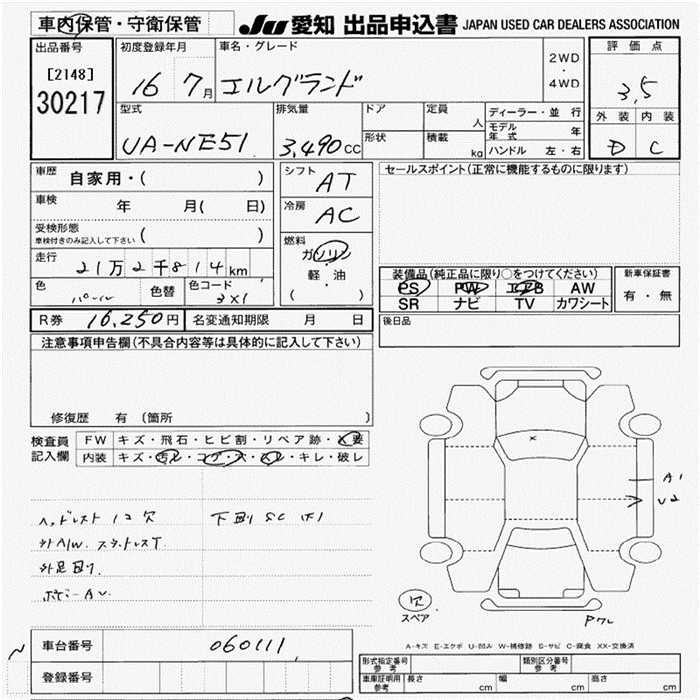 車内保管・守衛保管
JU 愛知 出品申込書 JAPAN USED CAR DEALERS ASSOCIATION
出品番号
[2148]
30217
初度登録年月
16 7月
車名・グレード
エルグランド
2WD
・
4WD
評価点
3,5
外装 内装
D C
型式
UA-NE51
排気量
3,490cc
ドア
形状
定員
人
積載
kg
ディーラー・並行
モデル年式 年
ハンドル 左・右
車歴
自家用・( )
車検
年 月( 日)
受検形態
車検付きのみ記入して下さい ( )
走行
21万2千814km
色
パール
色替
色コード
3X1
シフト
AT
冷房
AC
燃料
ガソリン
・
軽・油
( )
セールスポイント(正常に機能するものに限ります)
装備品(純正品に限り○をつけてください)
PS PW エアB AW
SR ナビ TV カワシート
新車保証書
有・無
後日品
R券 16,250円
名変通知期限 月 日
注意事項申告欄(不具合内容等は具体的に記入して下さい)
修復歴 有 〔箇所
検査員
記入欄
FW キズ・飛石・ヒビ割・リペア跡・X要
内装 キズ・汚レ・コゲ・穴・スレ・キレ・破レ
ヘッドレスト1コ欠
下廻りSC(ホ)
外A/W.スタッドレスT.
外足廻り.
ボデーAU
A1
U2
欠
スペア
Pクレ
A-キズ E-エクボ U-凹み W-補修跡 S-サビ C-腐食 XX-交換済
車台番号
060111
登録番号
形式指定番号
参考
類別区分番号
参考
車庫証明用
参考
長さ cm
幅 cm
高さ cm